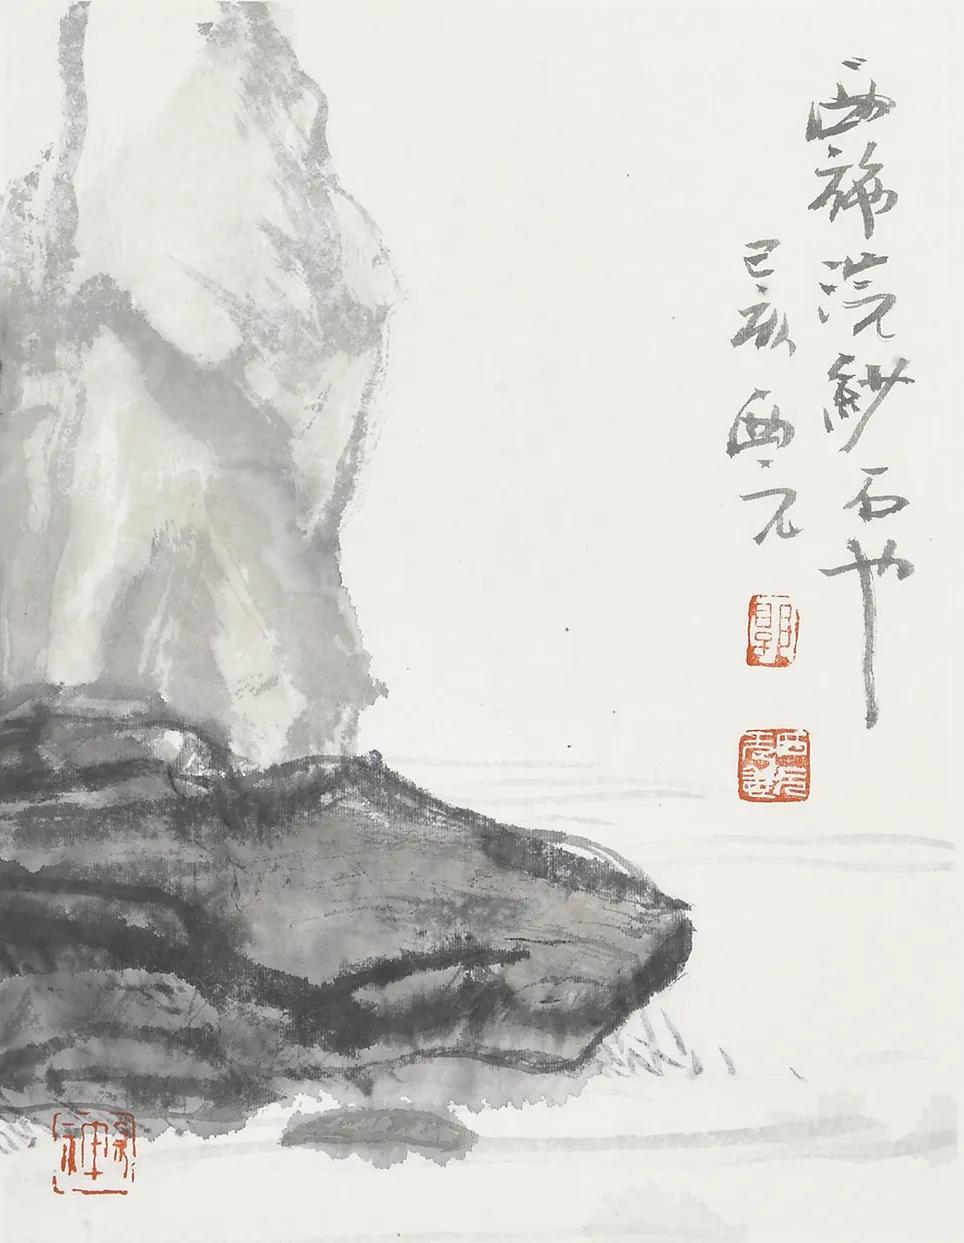 西施浣紗石也
己亥 西元